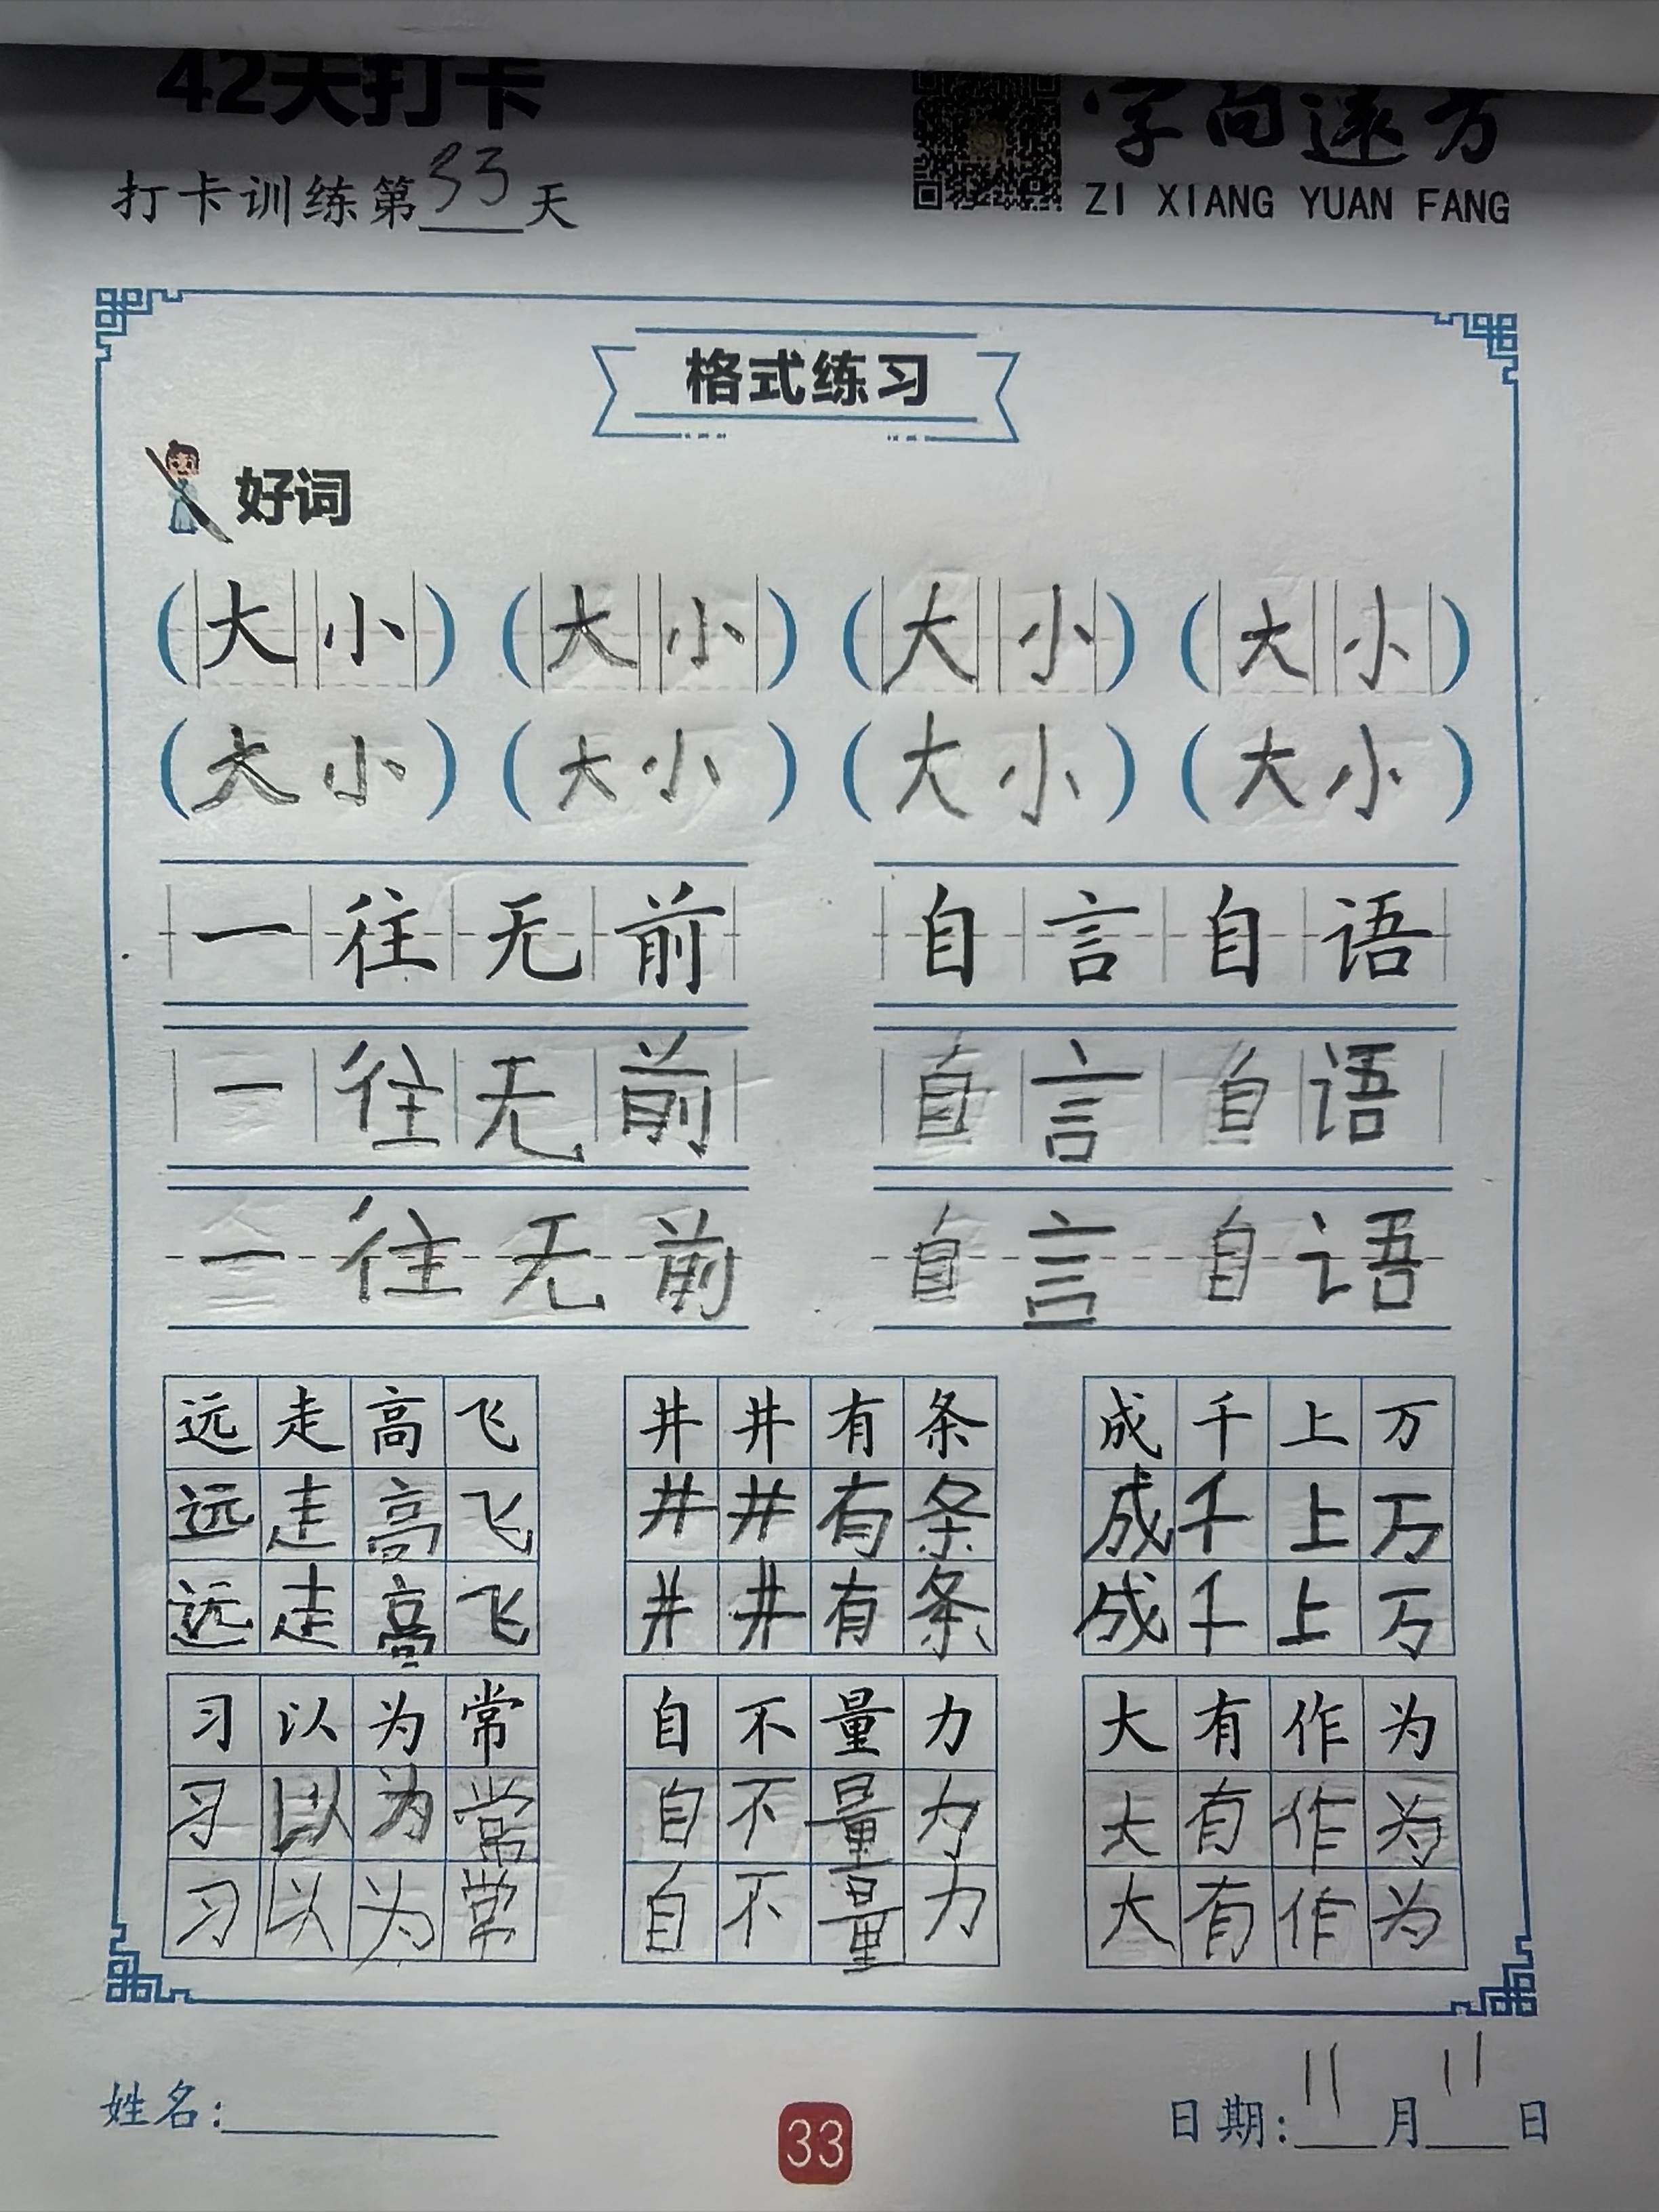 42天打卡
字向远方
打卡训练第33天
ZI XIANG YUAN FANG
格式练习
好词
(大小) (大小) (大小) (大小)
(大小) (大小) (大小) (大小)
一往无前 自言自语
一往无前 自言自语
一往无前 自言自语
远走高飞 井井有条 成千上万
远走高飞 井井有条 成千上万
远走高飞 井井有条 成千上万
习以为常 自不量力 大有作为
习以为常 自不量力 大有作为
习以为常 自不量力 大有作为
姓名:
33
日期:11月11日